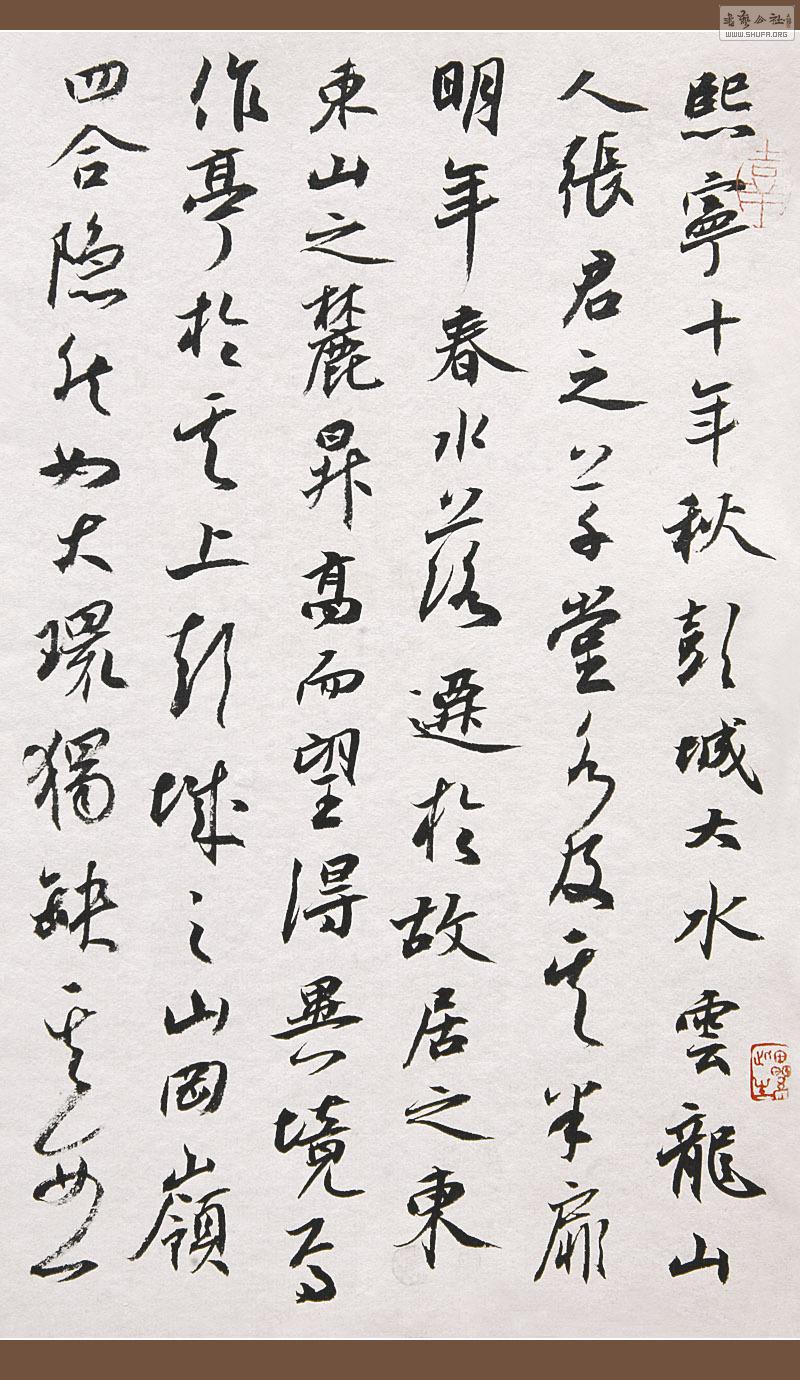 熙寧十年秋彭城大水雲龍山
人張君之草堂水及其半扉
明年春水落遷於故居之東
東山之麓昇高而望得異境焉
作亭於其上彭城之山岡嶺
四合隐然如大環獨缺其西一
WWW.SHUFA.ORG